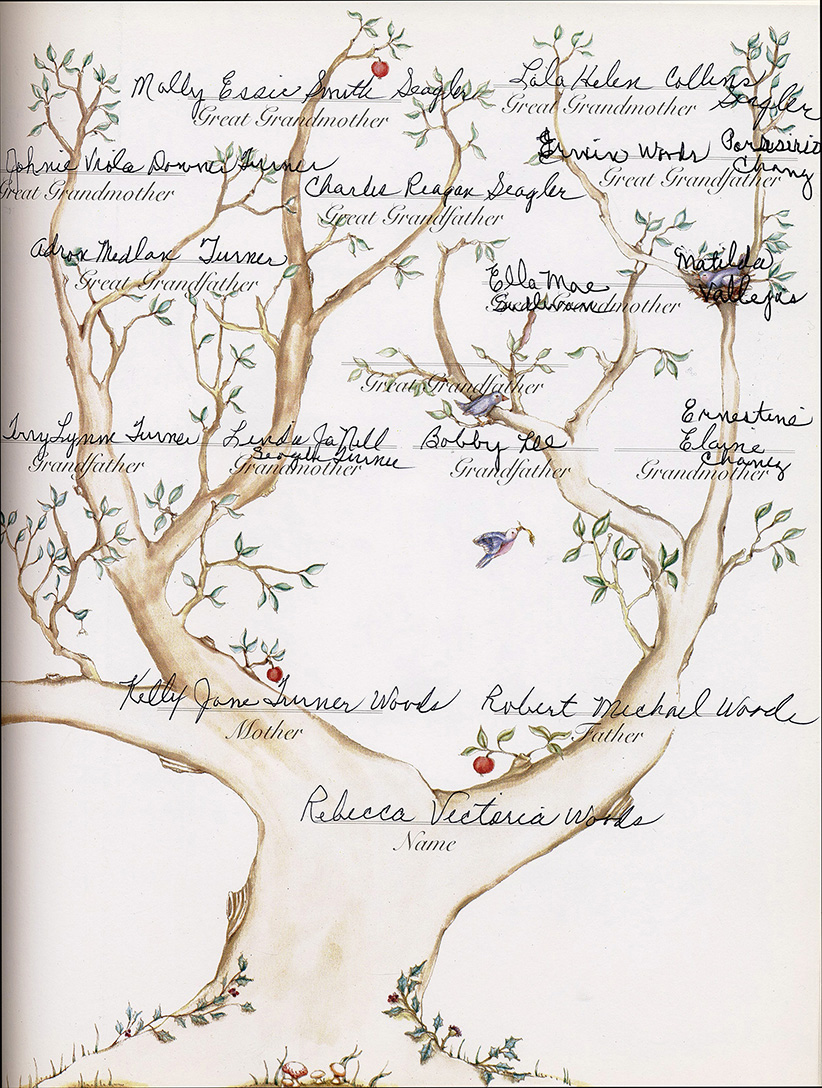 Molly Essie Smith Seagler
Great Grandmother
Lala Helen Collins
Seagler
Great Grandmother
Johnie Viola Turner
Great Grandmother
Charles Reagan Seagler
Great Grandfather
Erwin Woods
Chang
Great Grandfather
Adron Medlan Turner
Great Grandfather
Ella Mae
Great Grandmother
Matilda
Vallejas
Great Grandfather
Terry Lynn Turner
Grandfather
Linda JaNell
Seagler Turner
Grandmother
Bobby Lee
Grandfather
Ernestine
Elaine
Grandmother
Kelly Jane Turner Woods
Mother
Robert Michael Woods
Father
Rebecca Victoria Woods
Name